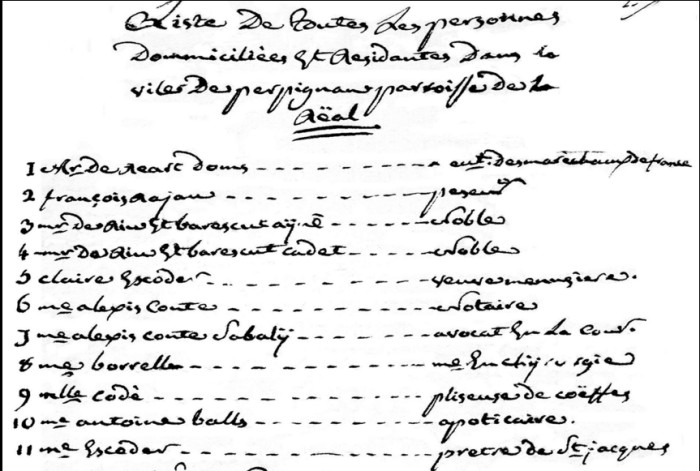 Liste De Toutes Les personnes
Dommiciliées Et Residantes Dans la
viles De perpignan parroisse de La
Réal
1 Mr. De Reart Doms eut. des marechaux de france
2 françois Rajau peseur
3 mr De Riu Et barescut ayné Noble
4 mr De Riu Et barescut cadet Noble
5 claire Escoder veuve menusiere.
6 me alexis Conte Notaire
7 me alexis conte Sabalÿ avocat En La Cour.
8 me borrelle me En chijrurgie
9 melle codè pliseuse de coëffes
10 me antoine balls apoticaire.
11 me Escoder pretre de St jacques